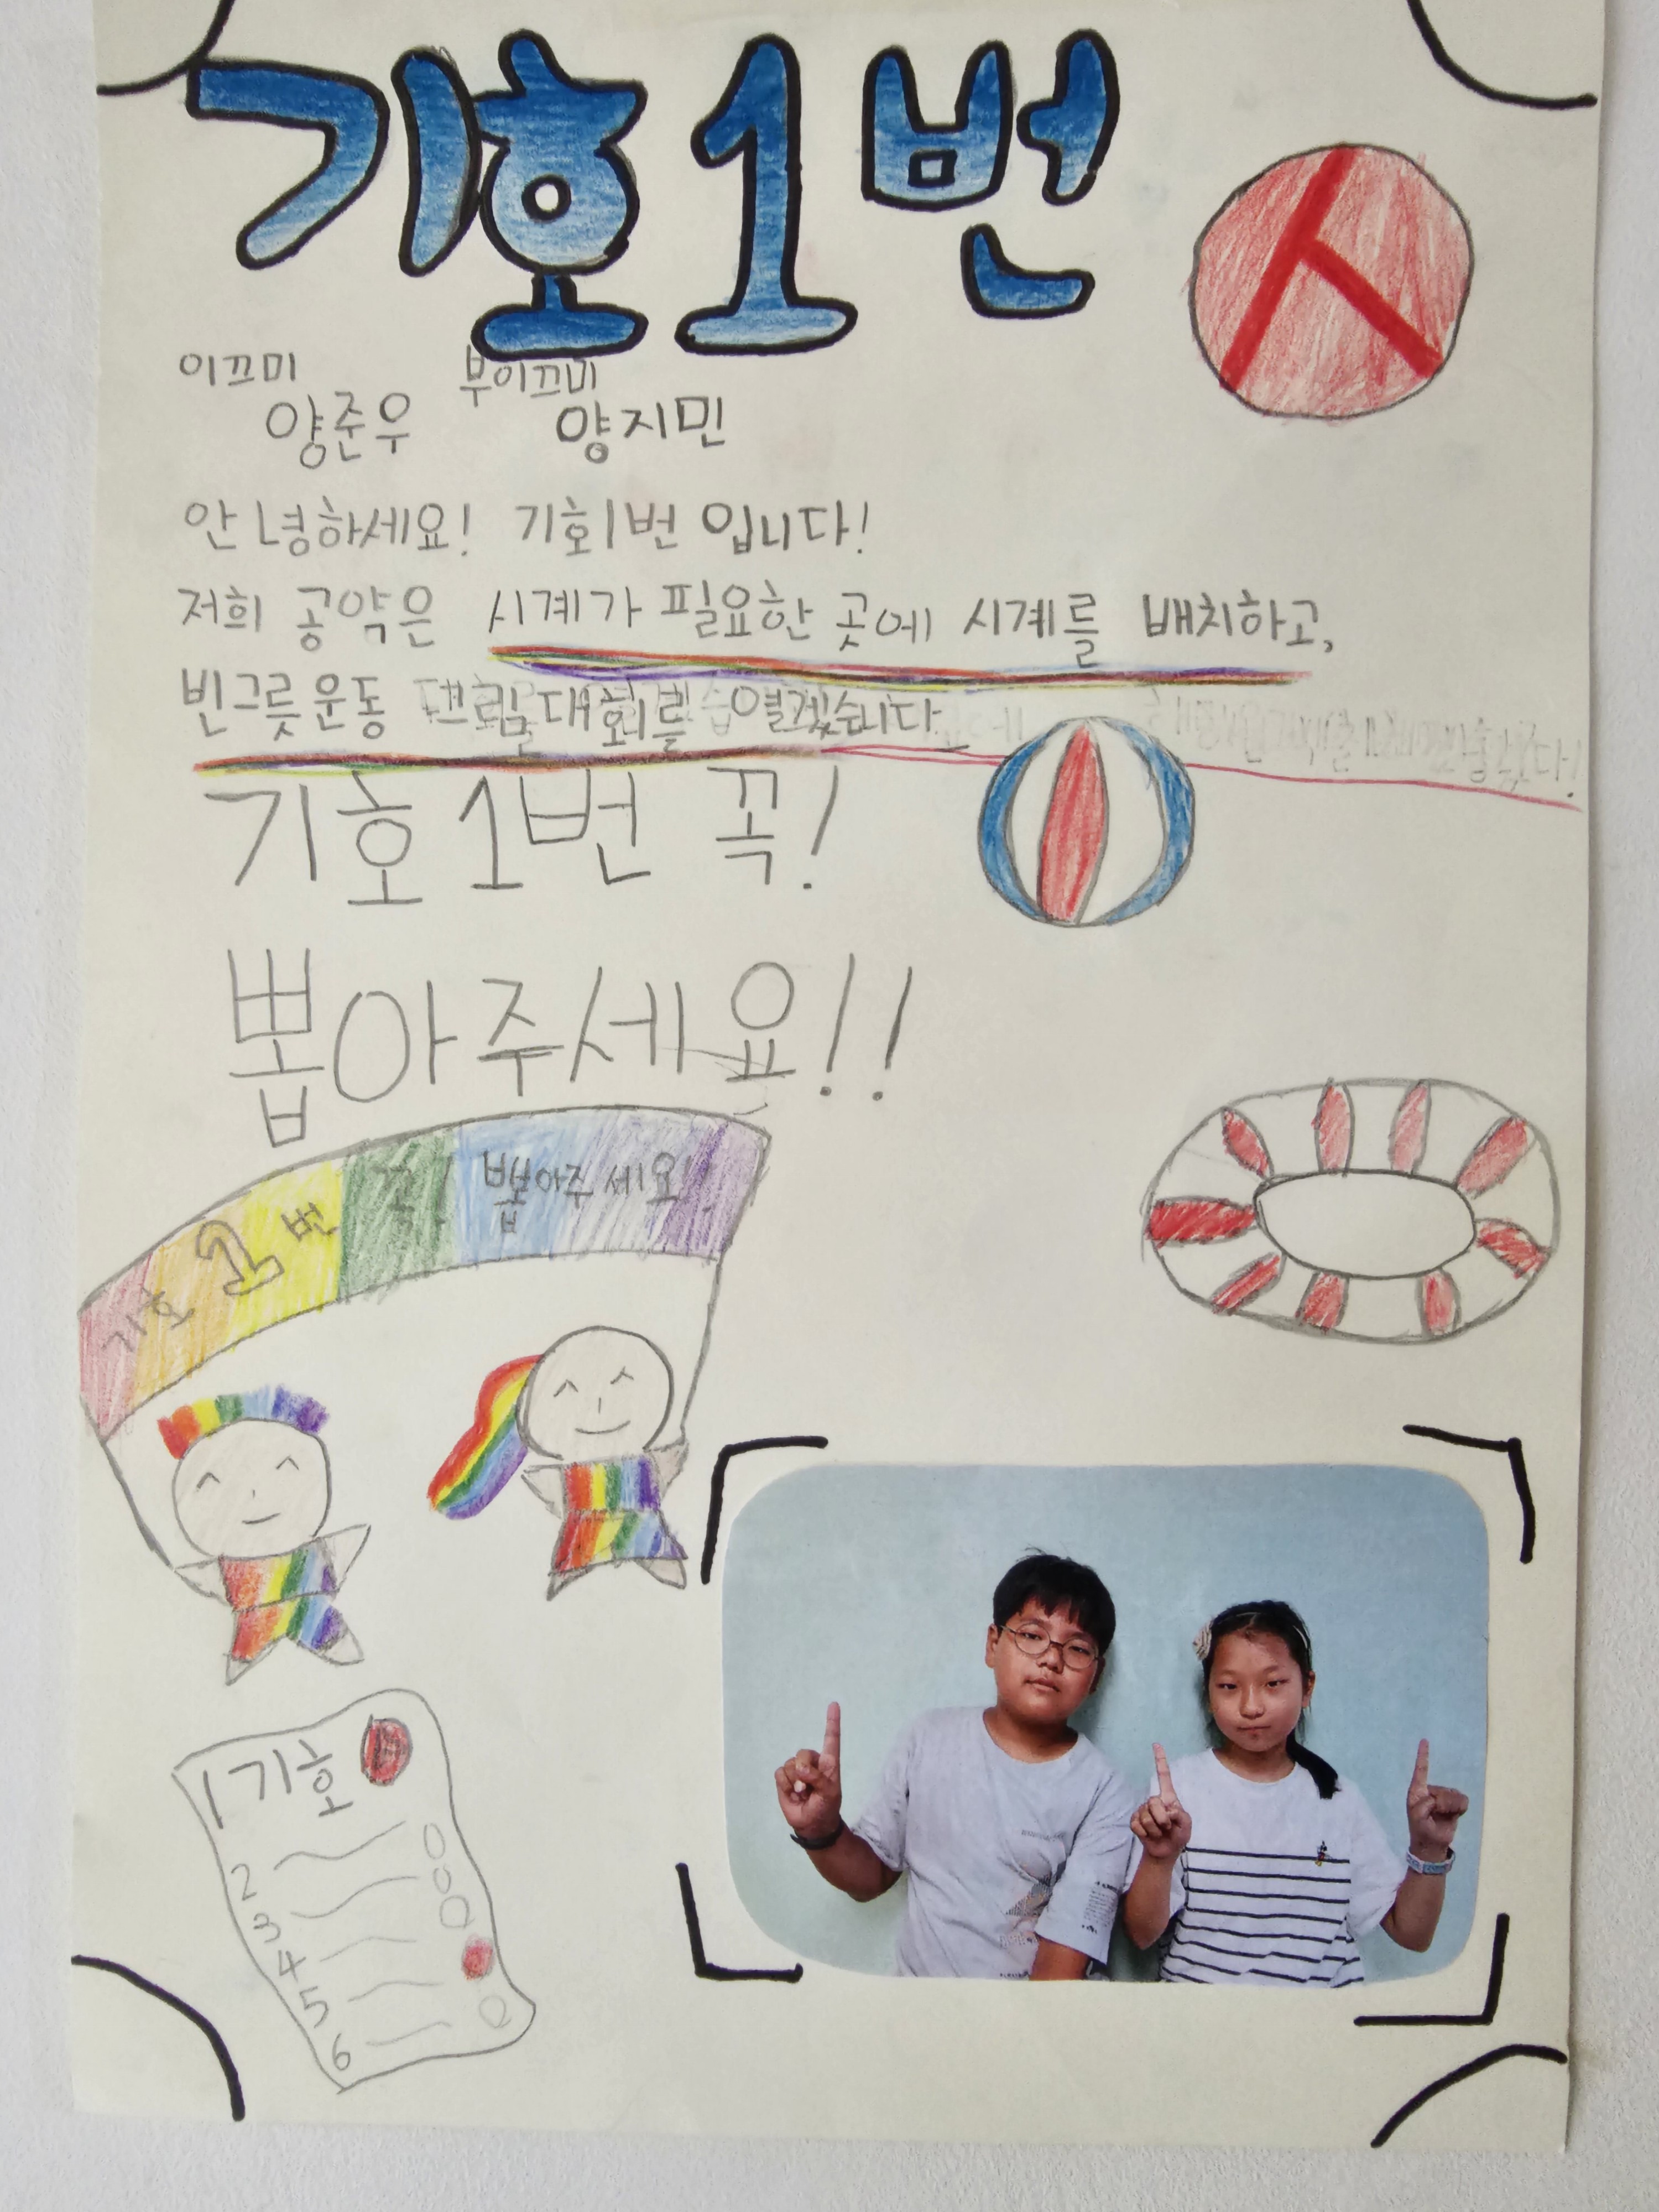 기호1번
이끄미 부이끄미
양준우 양지민
안녕하세요! 기호1번 입니다!
저희 공약은 시계가 필요한 곳에 시계를 배치하고,
빈그릇운동 대회를 열겠습니다
기호1번 꼭!
뽑아주세요!!
기호 1번 꼭! 뽑아주세요!!
1 기호
2
3
4
5
6